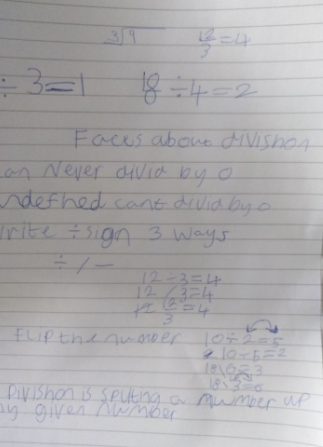 3√9 12/3=4
÷ 3=1 18÷4=2
Faces about divishon
an Never divid by 0
ndefned cant divid by 0
rite ÷ sign 3 ways
÷ / —
12÷3=4
12/3=4
12/3=4
flip the number 10÷2=5
10÷5=2
18\6=3
18\3=6
Divishon is spliting a number up
by given number